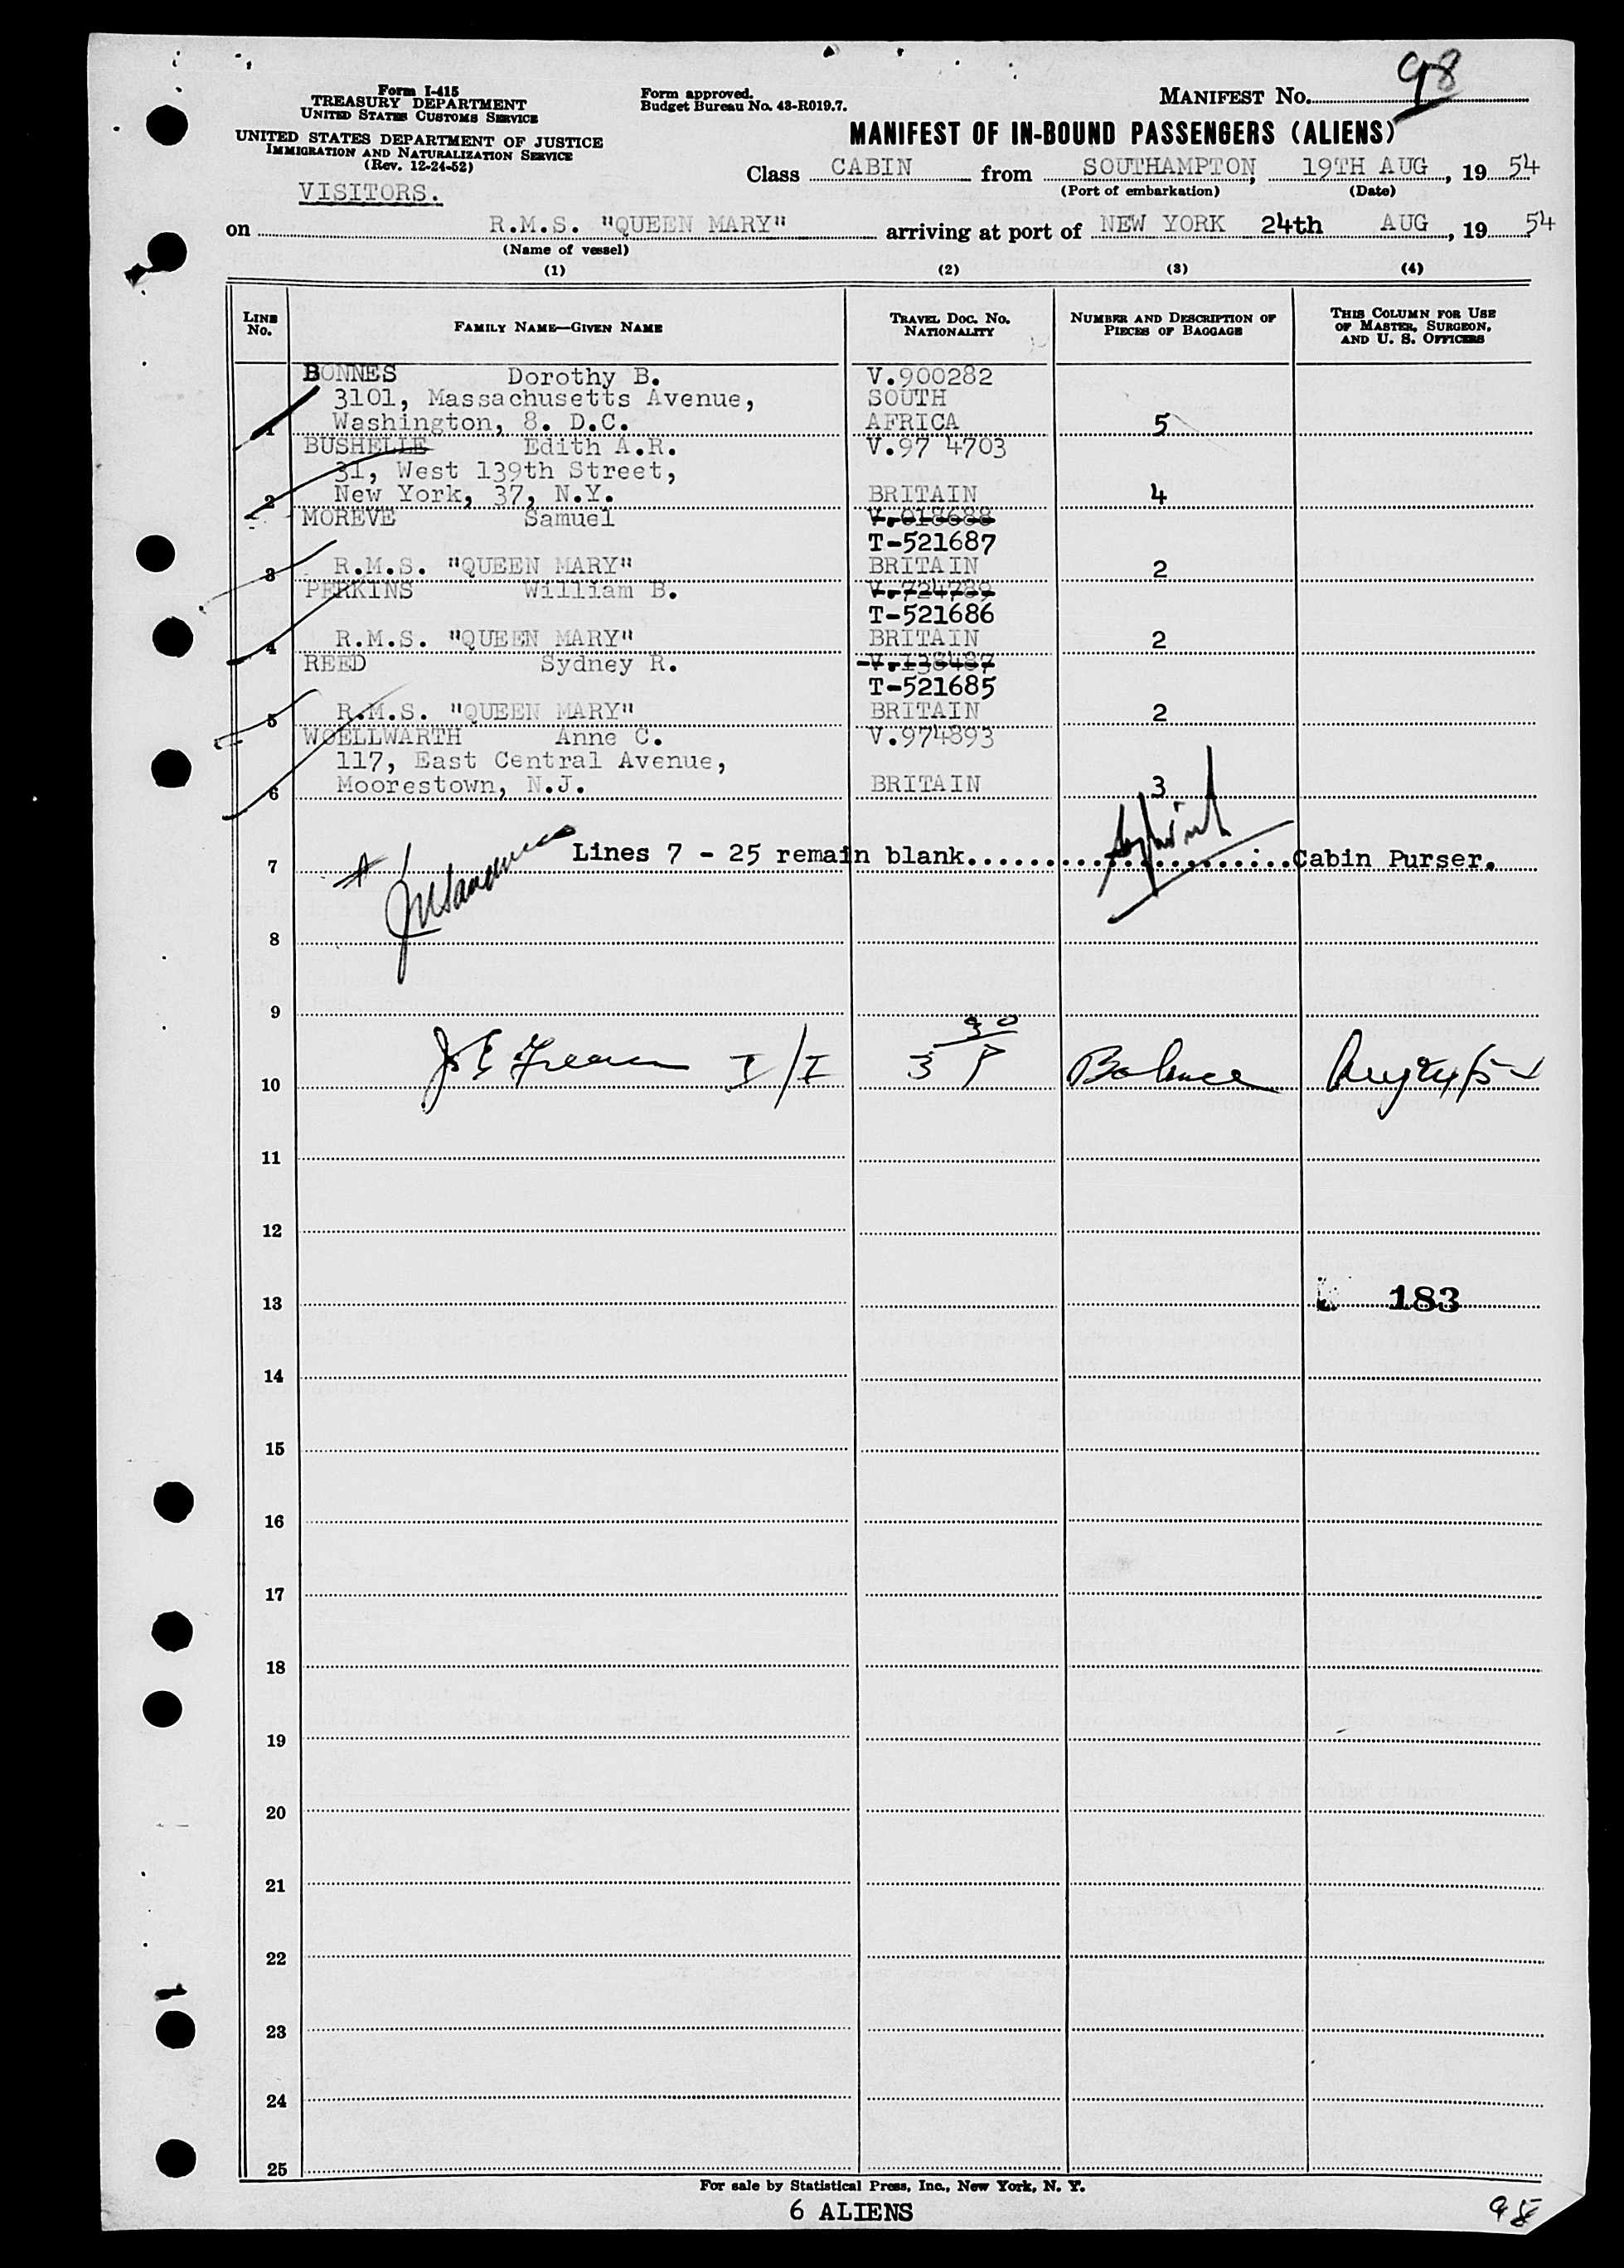 98
Form I-415
TREASURY DEPARTMENT
UNITED STATES CUSTOMS SERVICE
UNITED STATES DEPARTMENT OF JUSTICE
IMMIGRATION AND NATURALIZATION SERVICE
(Rev. 12-24-52)
VISITORS.
Form approved.
Budget Bureau No. 43-R019.7.
MANIFEST No.
MANIFEST OF IN-BOUND PASSENGERS (ALIENS)
Class CABIN from SOUTHAMPTON, 19TH AUG, 19 54
(Port of embarkation) (Date)
on R.M.S. "QUEEN MARY" arriving at port of NEW YORK 24th AUG, 19 54
(Name of vessel)
(1) (2) (3) (4)
LINE No. FAMILY NAME—GIVEN NAME TRAVEL DOC. NO. NATIONALITY NUMBER AND DESCRIPTION OF PIECES OF BAGGAGE THIS COLUMN FOR USE OF MASTER, SURGEON, AND U. S. OFFICERS
BONNES Dorothy B. V.900282
3101, Massachusetts Avenue, SOUTH
1 Washington, 8. D.C. AFRICA 5
BUSHELLE Edith A.R. V.97 4703
31, West 139th Street,
2 New York, 37, N.Y. BRITAIN 4
MOREVE Samuel V.018688
T-521687
3 R.M.S. "QUEEN MARY" BRITAIN 2
PERKINS William B. V.724789
T-521686
4 R.M.S. "QUEEN MARY" BRITAIN 2
REED Sydney R. V.138487
T-521685
5 R.M.S. "QUEEN MARY" BRITAIN 2
WOELLWARTH Anne C. V.974893
117, East Central Avenue,
6 Moorestown, N.J. BRITAIN 3
7 Lines 7 - 25 remain blank. Cabin Purser.
8
9
10 I/I 3 30 P Balance Aug 24/54
11
12
13 183
14
15
16
17
18
19
20
21
22
23
24
25
For sale by Statistical Press, Inc., New York, N. Y.
6 ALIENS
98